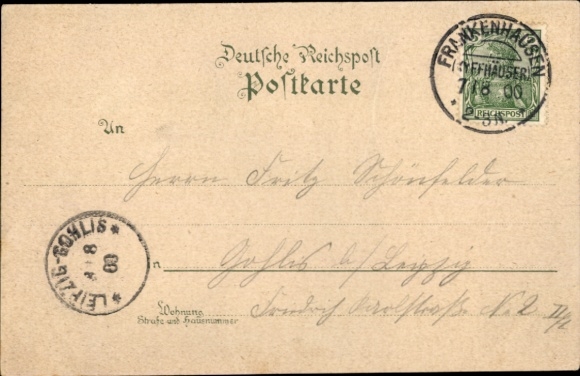 Deutsche Reichspost
Postkarte
FRANKENHAUSEN
(KYFFHÄUSER)
7 8 00
REICHSPOST
An
Herrn Fritz Schönfelder
LEIPZIG-GOHLIS
8
00
in Gohlis b/ Leipzig
Wohnung
Straße und Hausnummer
Friedrich Karlstraße No 2 II/